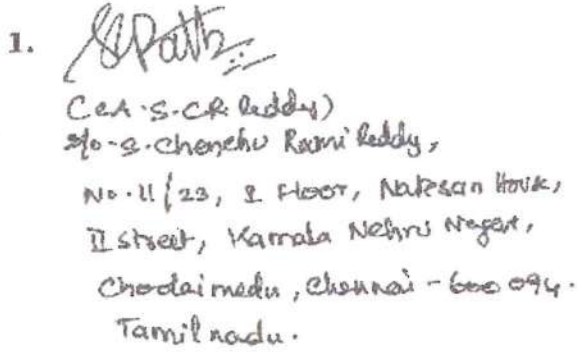 1.
S/o-S.Chenchu Rami Reddy,
No.11/23, I Floor, Natesan House,
II street, Kamala Nehru Nagar,
Choolaimedu, Chennai - 600 094.
Tamil nadu.